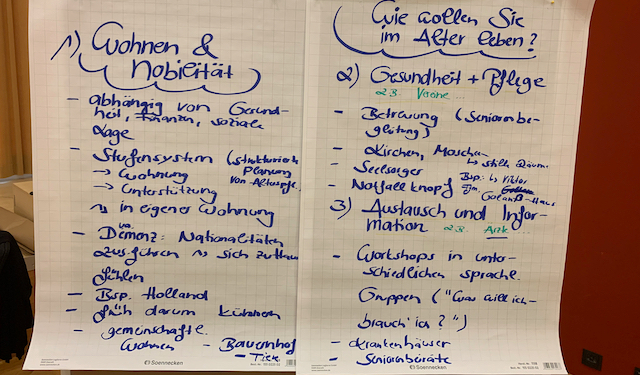 1) Wohnen &
Mobilität
- abhängig von Gesund-
heit, Finanzen, soziale
Lage
- Stufensystem (strukturierte
Planung
von Alterspfl.
→ Wohnung
→ Unterstützung
in eigener Wohnung
- Demenz: Nationalitäten
zus.führen sich zuhause
fühlen
- Bsp. Holland
- früh darum kümmern
- gemeinschaftl.
Wohnen - Bauernhof
- Tiere
Soennecken
Wie wollen Sie
im Alter leben?
2) Gesundheit + Pflege
z.B.
- Betreuung (Seniorenbe-
gleitung)
- Kirchen, Moscheen
↳ stille Räume
- Seelsorger
- Notfallknopf
Bsp.: Viktor
Gollancz-Haus
3) Austausch und Infor-
mation z.B. Arzt ...
- Workshops in unter-
schiedlichen sprachl.
Gruppen ("Was will ich-
brauch' ich?")
- Krankenhäuser
- Seniorenbüro
Soennecken